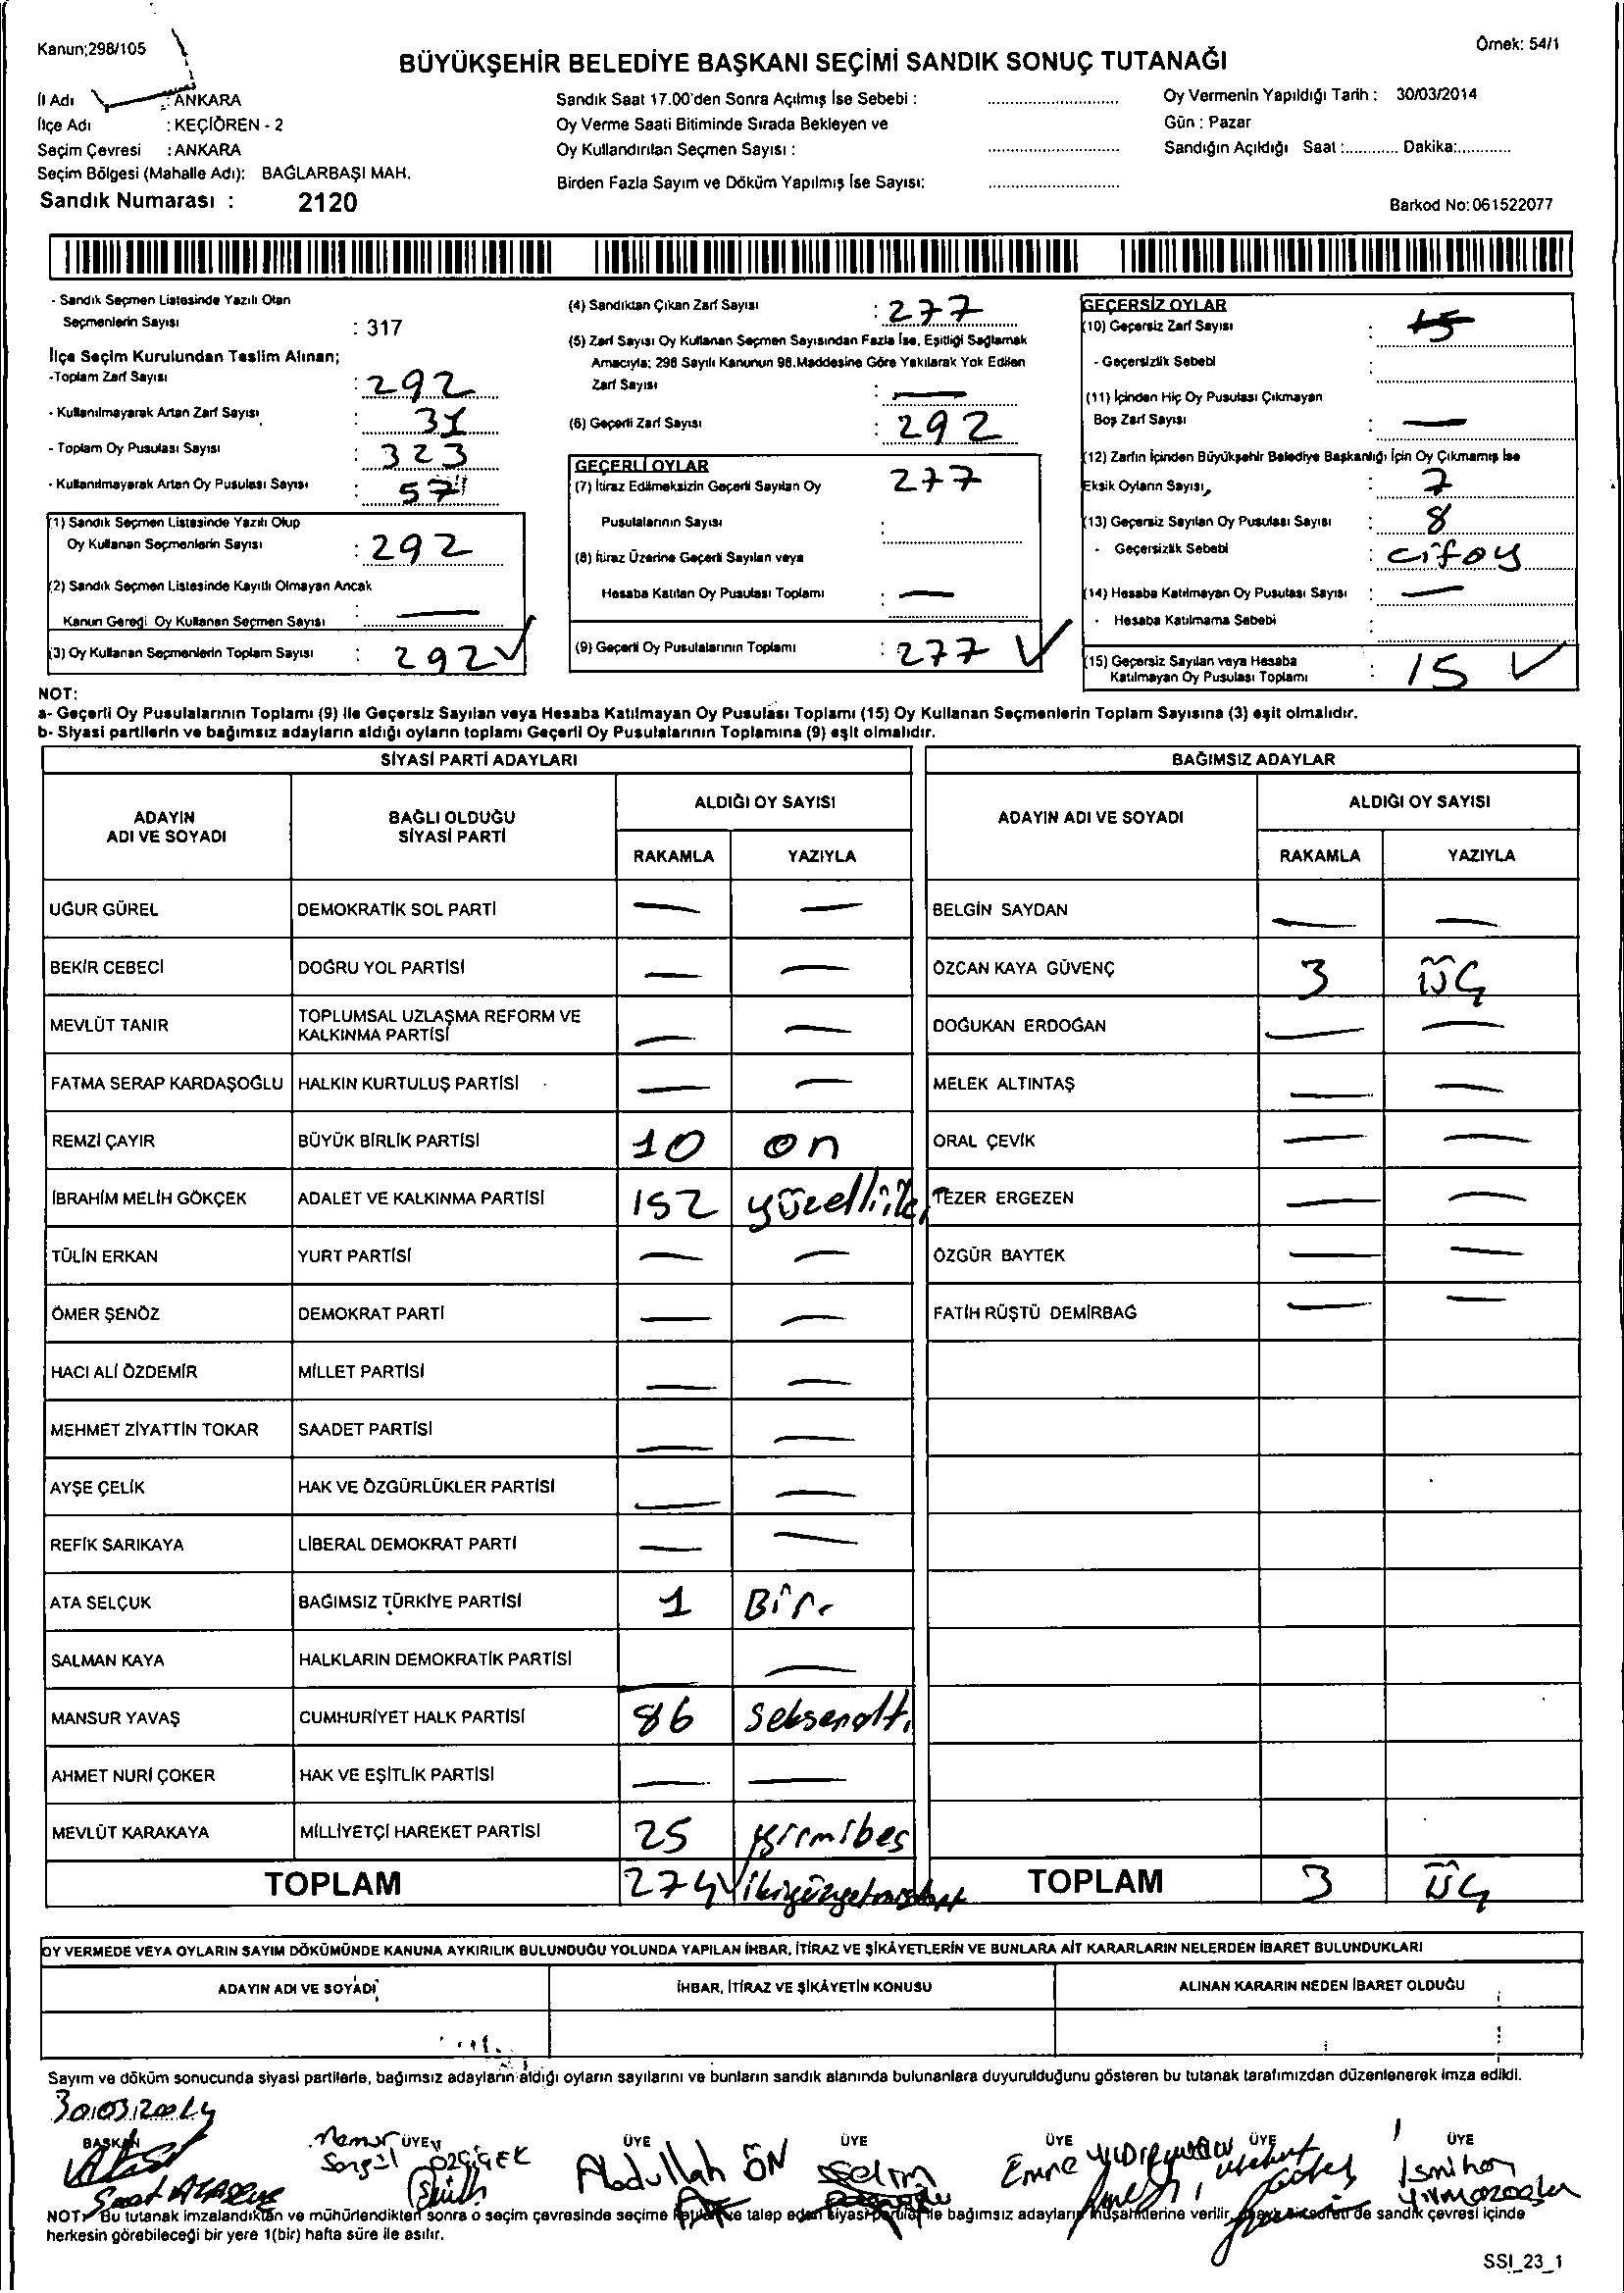 Kanun;298/105
Örnek: 54/1
BÜYÜKŞEHİR BELEDİYE BAŞKANI SEÇİMİ SANDIK SONUÇ TUTANAĞI
İl Adı : ANKARA
İlçe Adı : KEÇİÖREN - 2
Seçim Çevresi : ANKARA
Seçim Bölgesi (Mahalle Adı): BAĞLARBAŞI MAH.
Sandık Numarası : 2120
Sandık Saat 17.00'den Sonra Açılmış İse Sebebi :
Oy Verme Saati Bitiminde Sırada Bekleyen ve
Oy Kullandırılan Seçmen Sayısı :
Birden Fazla Sayım ve Döküm Yapılmış İse Sayısı:
Oy Vermenin Yapıldığı Tarih : 30/03/2014
Gün : Pazar
Sandığın Açıldığı Saat :............ Dakika:............
Barkod No:061522077
- Sandık Seçmen Listesinde Yazılı Olan
Seçmenlerin Sayısı : 317
İlçe Seçim Kurulundan Teslim Alınan;
-Toplam Zarf Sayısı : 292
- Kullanılmayarak Artan Zarf Sayısı : 31
- Toplam Oy Pusulası Sayısı : 323
- Kullanılmayarak Artan Oy Pusulası Sayısı : 57
(1) Sandık Seçmen Listesinde Yazılı Olup
Oy Kullanan Seçmenlerin Sayısı : 292
(2) Sandık Seçmen Listesinde Kayıtlı Olmayan Ancak
Kanun Gereği Oy Kullanan Seçmen Sayısı : —
(3) Oy Kullanan Seçmenlerin Toplam Sayısı : 292 ✓
(4) Sandıktan Çıkan Zarf Sayısı : 277
(5) Zarf Sayısı Oy Kullanan Seçmen Sayısından Fazla İse, Eşitliği Sağlamak
Amacıyla; 298 Sayılı Kanunun 98.Maddesine Göre Yakılarak Yok Edilen
Zarf Sayısı : —
(6) Geçerli Zarf Sayısı : 292
GEÇERLİ OYLAR
(7) İtiraz Edilmeksizin Geçerli Sayılan Oy 277
Pusulalarının Sayısı :
(8) İtiraz Üzerine Geçerli Sayılan veya
Hesaba Katılan Oy Pusulası Toplamı : —
(9) Geçerli Oy Pusulalarının Toplamı : 277 ✓
GEÇERSİZ OYLAR
(10) Geçersiz Zarf Sayısı : 15
- Geçersizlik Sebebi :
(11) İçinden Hiç Oy Pusulası Çıkmayan
Boş Zarf Sayısı : —
(12) Zarfın İçinden Büyükşehir Belediye Başkanlığı İçin Oy Çıkmamış İse
Eksik Oyların Sayısı : 7
(13) Geçersiz Sayılan Oy Pusulası Sayısı : 8
- Geçersizlik Sebebi : çifoy
(14) Hesaba Katılmayan Oy Pusulası Sayısı : —
- Hesaba Katılmama Sebebi :
(15) Geçersiz Sayılan veya Hesaba
Katılmayan Oy Pusulası Toplamı : 15 ✓
NOT:
a- Geçerli Oy Pusulalarının Toplamı (9) ile Geçersiz Sayılan veya Hesaba Katılmayan Oy Pusulası Toplamı (15) Oy Kullanan Seçmenlerin Toplam Sayısına (3) eşit olmalıdır.
b- Siyasi partilerin ve bağımsız adayların aldığı oyların toplamı Geçerli Oy Pusulalarının Toplamına (9) eşit olmalıdır.
SİYASİ PARTİ ADAYLARI
ADAYIN ADI VE SOYADI
BAĞLI OLDUĞU SİYASİ PARTİ
ALDIĞI OY SAYISI
RAKAMLA YAZIYLA
UĞUR GÜREL DEMOKRATİK SOL PARTİ — —
BEKİR CEBECİ DOĞRU YOL PARTİSİ — —
MEVLÜT TANIR TOPLUMSAL UZLAŞMA REFORM VE KALKINMA PARTİSİ — —
FATMA SERAP KARDAŞOĞLU HALKIN KURTULUŞ PARTİSİ — —
REMZİ ÇAYIR BÜYÜK BİRLİK PARTİSİ 10 on
İBRAHİM MELİH GÖKÇEK ADALET VE KALKINMA PARTİSİ 152 yüzelliiki
TÜLİN ERKAN YURT PARTİSİ — —
ÖMER ŞENÖZ DEMOKRAT PARTİ — —
HACI ALİ ÖZDEMİR MİLLET PARTİSİ — —
MEHMET ZİYATTİN TOKAR SAADET PARTİSİ — —
AYŞE ÇELİK HAK VE ÖZGÜRLÜKLER PARTİSİ — —
REFİK SARIKAYA LİBERAL DEMOKRAT PARTİ — —
ATA SELÇUK BAĞIMSIZ TÜRKİYE PARTİSİ 1 Bir
SALMAN KAYA HALKLARIN DEMOKRATİK PARTİSİ — —
MANSUR YAVAŞ CUMHURİYET HALK PARTİSİ 86 Seksenaltı
AHMET NURİ ÇOKER HAK VE EŞİTLİK PARTİSİ — —
MEVLÜT KARAKAYA MİLLİYETÇİ HAREKET PARTİSİ 25 yirmibeş
TOPLAM 274 ✓
BAĞIMSIZ ADAYLAR
ADAYIN ADI VE SOYADI
ALDIĞI OY SAYISI
RAKAMLA YAZIYLA
BELGİN SAYDAN — —
ÖZCAN KAYA GÜVENÇ 3 ÜÇ
DOĞUKAN ERDOĞAN — —
MELEK ALTINTAŞ — —
ORAL ÇEVİK — —
TEZER ERGEZEN — —
ÖZGÜR BAYTEK — —
FATİH RÜŞTÜ DEMİRBAĞ — —
TOPLAM 3 ÜÇ
OY VERMEDE VEYA OYLARIN SAYIM DÖKÜMÜNDE KANUNA AYKIRILIK BULUNDUĞU YOLUNDA YAPILAN İHBAR, İTİRAZ VE ŞİKÂYETLERİN VE BUNLARA AİT KARARLARIN NELERDEN İBARET BULUNDUKLARI
ADAYIN ADI VE SOYADI
İHBAR, İTİRAZ VE ŞİKÂYETİN KONUSU
ALINAN KARARIN NEDEN İBARET OLDUĞU
Sayım ve döküm sonucunda siyasi partilerle, bağımsız adayların aldığı oyların sayılarını ve bunların sandık alanında bulunanlara duyurulduğunu gösteren bu tutanak tarafımızdan düzenlenerek imza edildi.
30.03.2014
BAŞKAN ÜYE ÜYE ÜYE ÜYE ÜYE ÜYE
Memur
Songül ÖZÇİÇEK
Abdullah ÖN
Selim
Emre
NOT: Bu tutanak imzalandıktan ve mühürlendikten sonra o seçim çevresinde seçime katılan ve talep eden siyasi partiler ile bağımsız adayların müşahitlerine verilir, de sandık çevresi içinde
herkesin görebileceği bir yere 1(bir) hafta süre ile asılır.
SSI_23_1